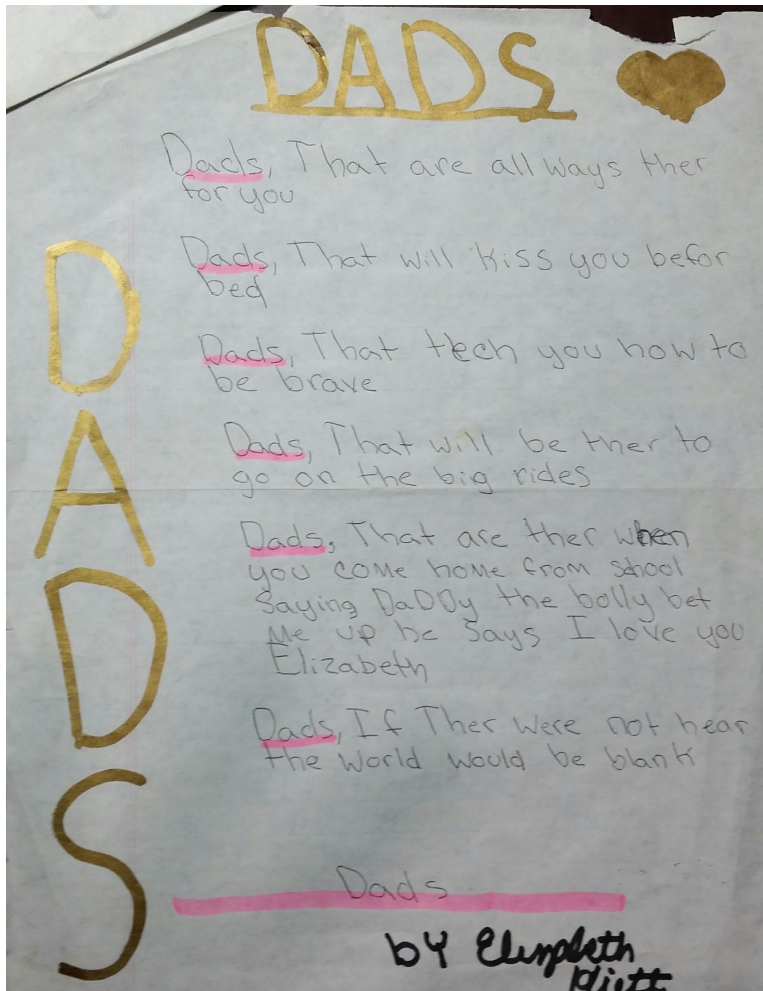 DADS
Dads, That are all ways ther
for you
Dads, That will kiss you befor
bed
Dads, That tech you how to
be brave
Dads, That will be ther to
go on the big rides
Dads, That are ther when
you come home from school
saying DaDDy the bolly bet
Me up he says I love you
Elizabeth
Dads, If Ther were not hear
the world would be blank
DADS
Dads
by Elizabeth